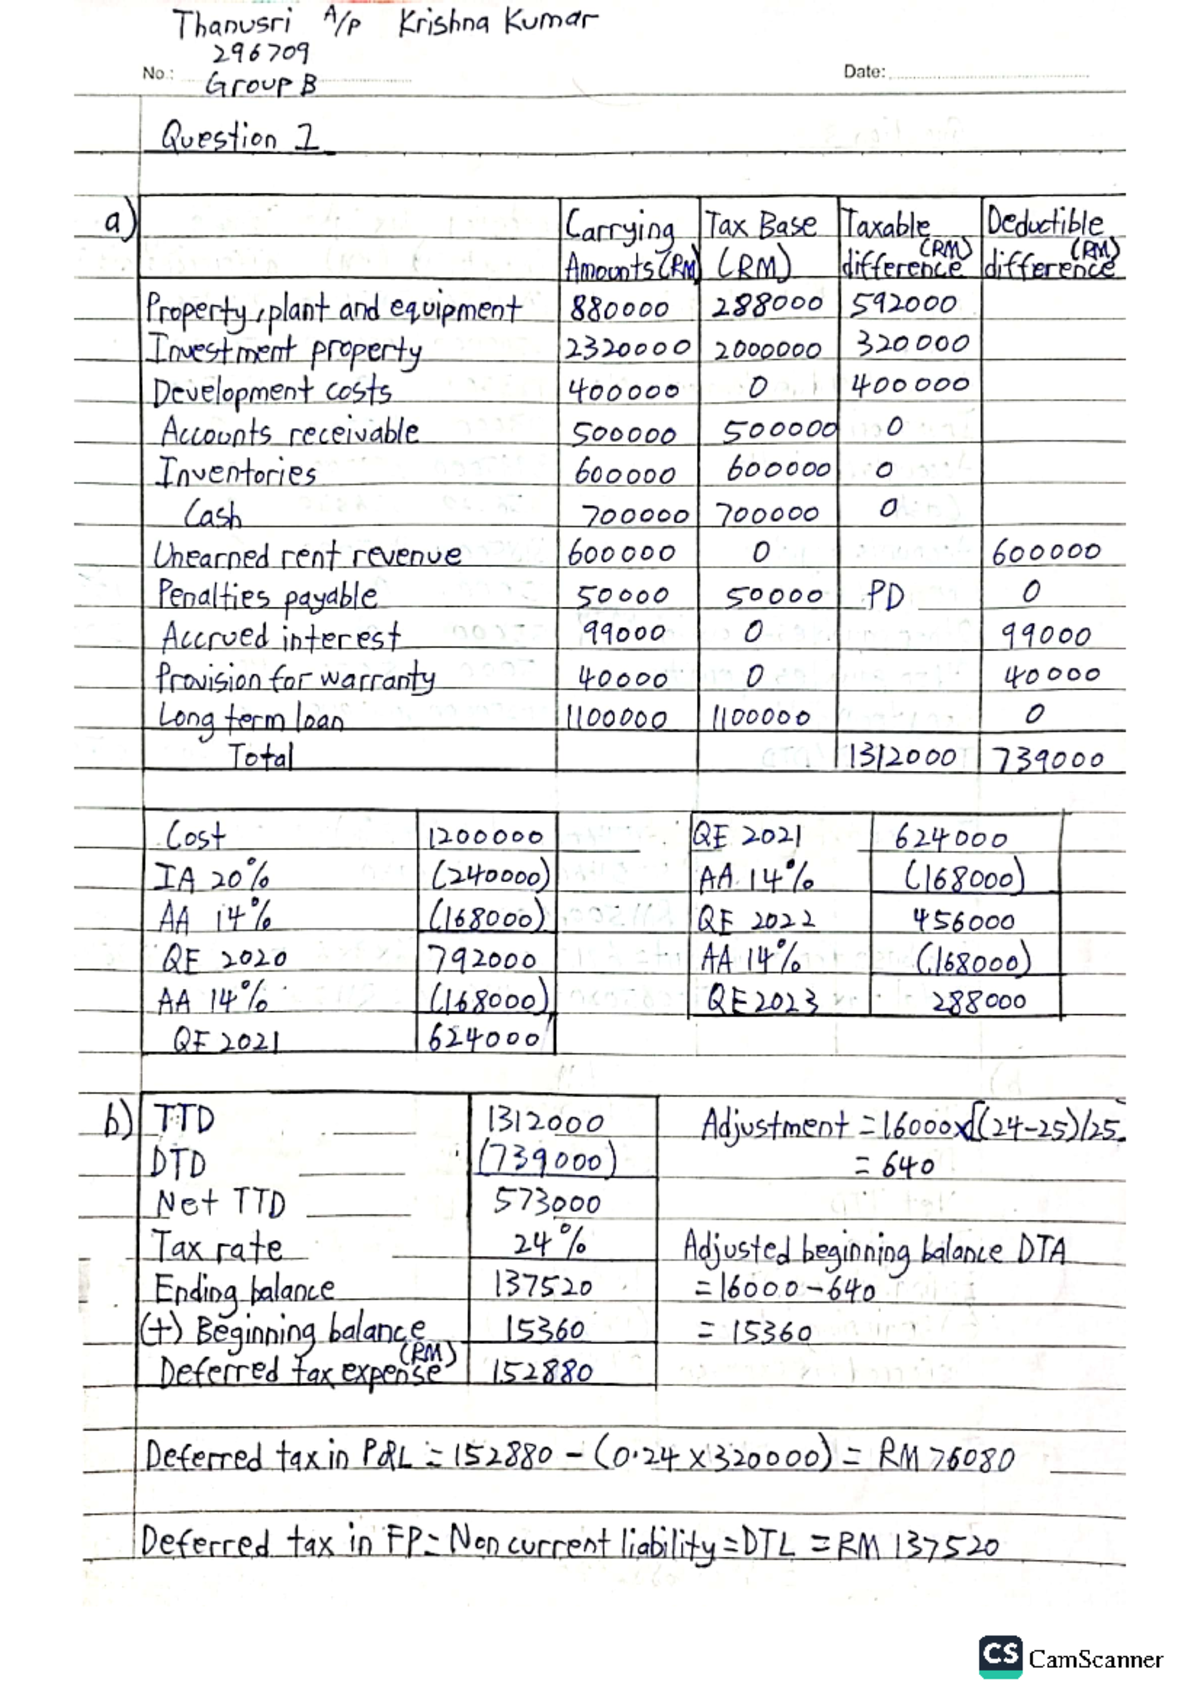 Thanusri A/P Krishna Kumar
296709
No.: Group B Date:
Question 1
a) Carrying Amounts (RM) Tax Base (RM) Taxable difference (RM) Deductible difference (RM)
Property, plant and equipment 880000 288000 592000
Investment property 2320000 2000000 320000
Development costs 400000 0 400000
Accounts receivable 500000 500000 0
Inventories 600000 600000 0
Cash 700000 700000 0
Unearned rent revenue 600000 0 600000
Penalties payable 50000 50000 PD 0
Accrued interest 99000 0 99000
Provision for warranty 40000 0 40000
Long term loan 1100000 1100000 0
Total 1312000 739000
Cost 1200000
IA 20% (240000)
AA 14% (168000)
QE 2020 792000
AA 14% (168000)
QE 2021 624000
QE 2021 624000
AA 14% (168000)
QE 2022 456000
AA 14% (168000)
QE 2023 288000
b) TTD 1312000
DTD (739000)
Net TTD 573000
Tax rate 24%
Ending balance 137520
(+) Beginning balance 15360
Deferred tax expense (RM) 152880
Adjustment = 16000x[(24-25)/25
= 640
Adjusted beginning balance DTA
= 16000 - 640
= 15360
Deferred tax in P&L = 152880 - (0.24 x 320000) = RM 76080
Deferred tax in FP = Non current liability = DTL = RM 137520
CS CamScanner